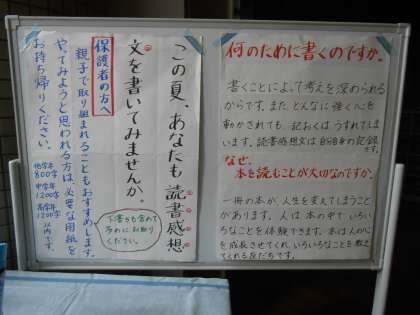 この夏、あなたも読書感想
文を書いてみませんか。
下書きも含めて
多めにお取り
ください。
保護者の方へ
親子で取り組まれることもおすすめします。
やってみようと思われる方は、必要な用紙を
お持ち帰りください。
低学年
800字
中学年
1200字
高学年
1200字
以内です。
何のために書くのですか。
書くことによって考えを深められる
からです。また、どんなに強く心を
動かされても、記おくはうすれてしま
います。読書感想文は自分自身の記録
です。
なぜ、
本を読むことが大切なのですか。
一冊の本が、人生を変えてしまうことが
あります。人は、本の中でいろいろ
なことを体験できます。本は人の心
を成長させてくれ、いろいろなことを教え
てくれる友だちです。